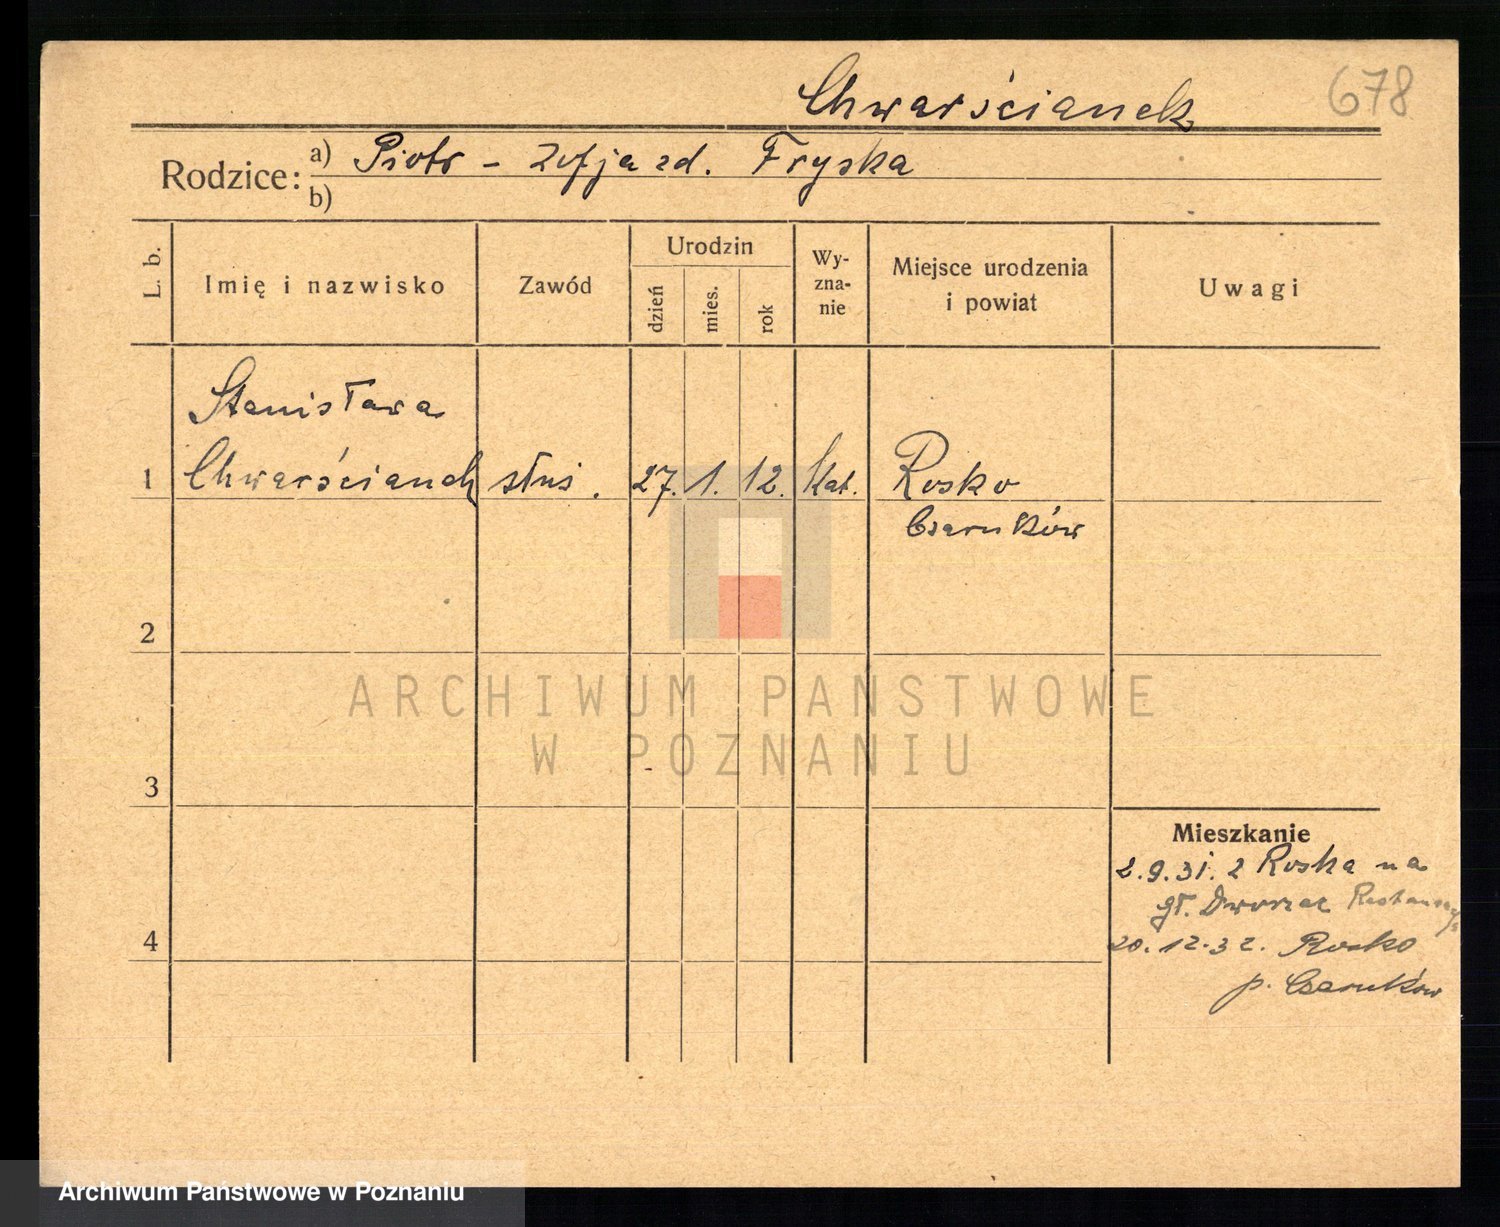 Chwarścianek
678
Rodzice: a) Piotr - Zofja zd. Fryska
b)
L. b.
Imię i nazwisko
Zawód
Urodzin
dzień
mies.
rok
Wy-
zna-
nie
Miejsce urodzenia
i powiat
Uwagi
Stanisława
1 Chwarścianek służ. 27. 1. 12. Kat. Rosko
Czarnków
2
3
4
Mieszkanie
2.9.31. z Roska na
gł. Dworzec
20.12.32. Rosko
p. Czarnków
ARCHIWUM PAŃSTWOWE
W POZNANIU
Archiwum Państwowe w Poznaniu